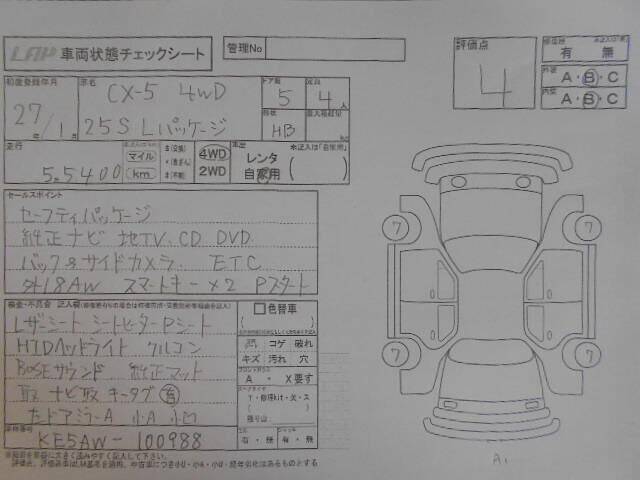 LAP 車両状態チェックシート
管理No
評価点
4
有 無
外装 A・B・C
内装 A・B・C
初度登録年月
27年/1月
車名
CX-5 4WD
25S Lパッケージ
ドア数
5
定員
4人
形状
HB
走行
55400
マイル
km
4WD
2WD
車歴
レンタ
自家用
セールスポイント
セーフティパッケージ
純正ナビ 地TV.CD DVD
バック&サイドカメラ. ETC
外18AW スマートキー×2 Pスタート
検査・不具合 記入欄
レザーシート シートヒーター Pシート
HIDヘッドライト クルコン
BOSEサウンド 純正マット
取 ナビ取 キータグ 有
左ドアミラーA 小A 小凹
車台番号
KE5AW-100988
色替車
コゲ 破れ
キズ 汚れ 穴
フロントガラス
A ・ X要す
T・修理kit・欠・ス
残り山
有・無
有・無
7
7
7
7
A1